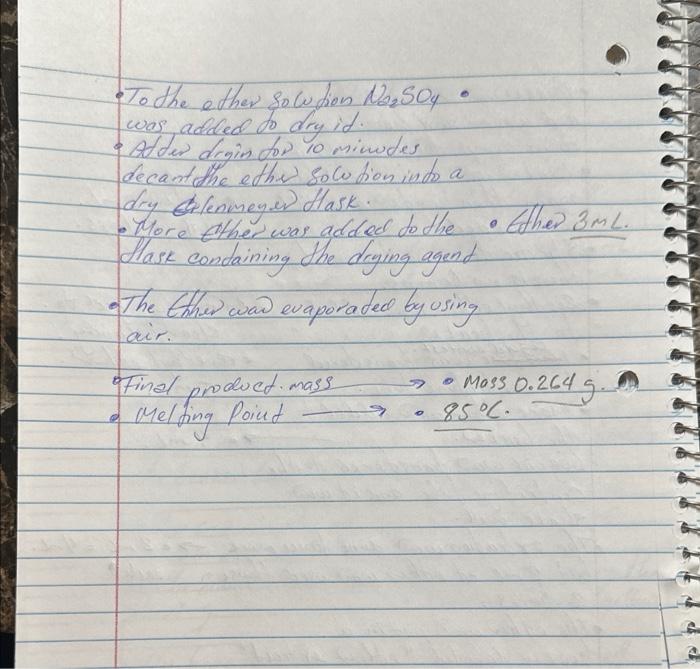 • To the ether solution Na₂SO₄ •
was added to dry it.
• After dryin for 10 minutes
decant the ether solution into a
dry Erlenmeyer flask.
• More Ether was added to the • Ether 3mL.
flask containing the drying agent
• The Ether was evaporated by using
air.
• Final product mass → • Mass 0.264 g.
• Melting Point → • 85°C.